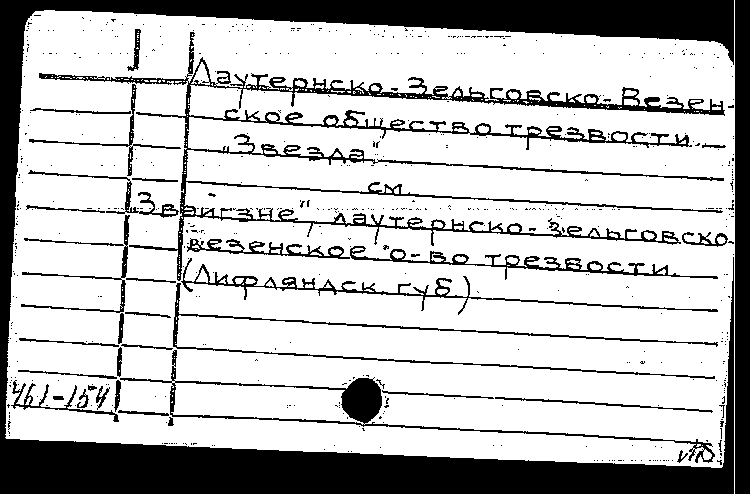 Лаутернско-Зельговско-Везен-
ское общество трезвости
„Звезда".
см.
„Звайгзне", лаутернско-зельговско-
везенское о-во трезвости.
(Лифляндск. губ.)
461-154